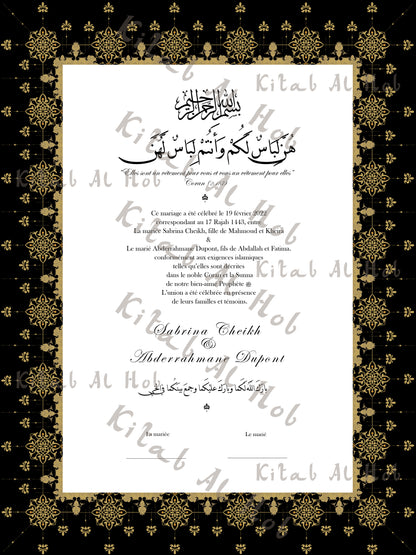 بسم الله الرحمن الرحيم
هُنَّ لِبَاسٌ لَكُمْ وَأَنْتُمْ لِبَاسٌ لَهُنَّ
"Elles sont un vêtement pour vous et vous un vêtement pour elles"
Coran
Ce mariage a été célébré le 19 février 2022
correspondant au 17 Rajab 1443, entre
La mariée Sabrina Cheikh, fille de Mahmoud et Kheira
&
Le marié Abderrahmane Dupont, fils de Abdallah et Fatima.
conformément aux exigences islamiques
telles qu'elles sont décrites
dans le noble Coran et la Sunna
de notre bien-aimé Prophète ﷺ
L'union a été célébrée en présence
de leurs familles et témoins.
Sabrina Cheikh
&
Abderrahmane Dupont
بارك الله لكما وبارك عليكما وجمع بينكما في الخير
La mariée
Le marié
Kitab Al Hob
Kitab Al Hob
Kitab Al Hob
Kitab Al Hob
Kitab Al Hob